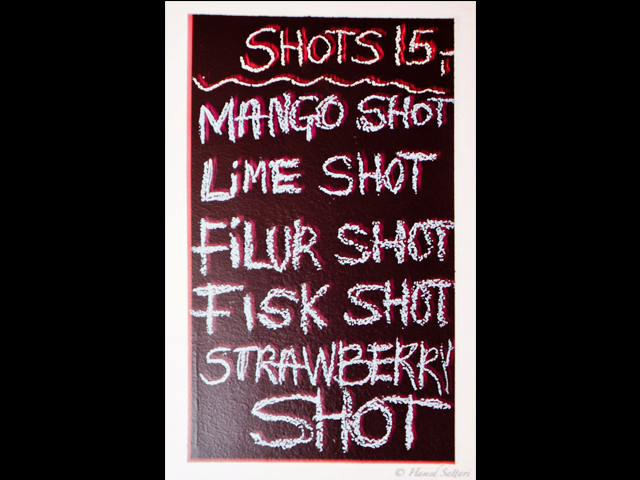 SHOTS 15,-
MANGO SHOT
LiME SHOT
FiLUR SHOT
FISK SHOT
STRAWBERRY
SHOT
© Hamed Sattari